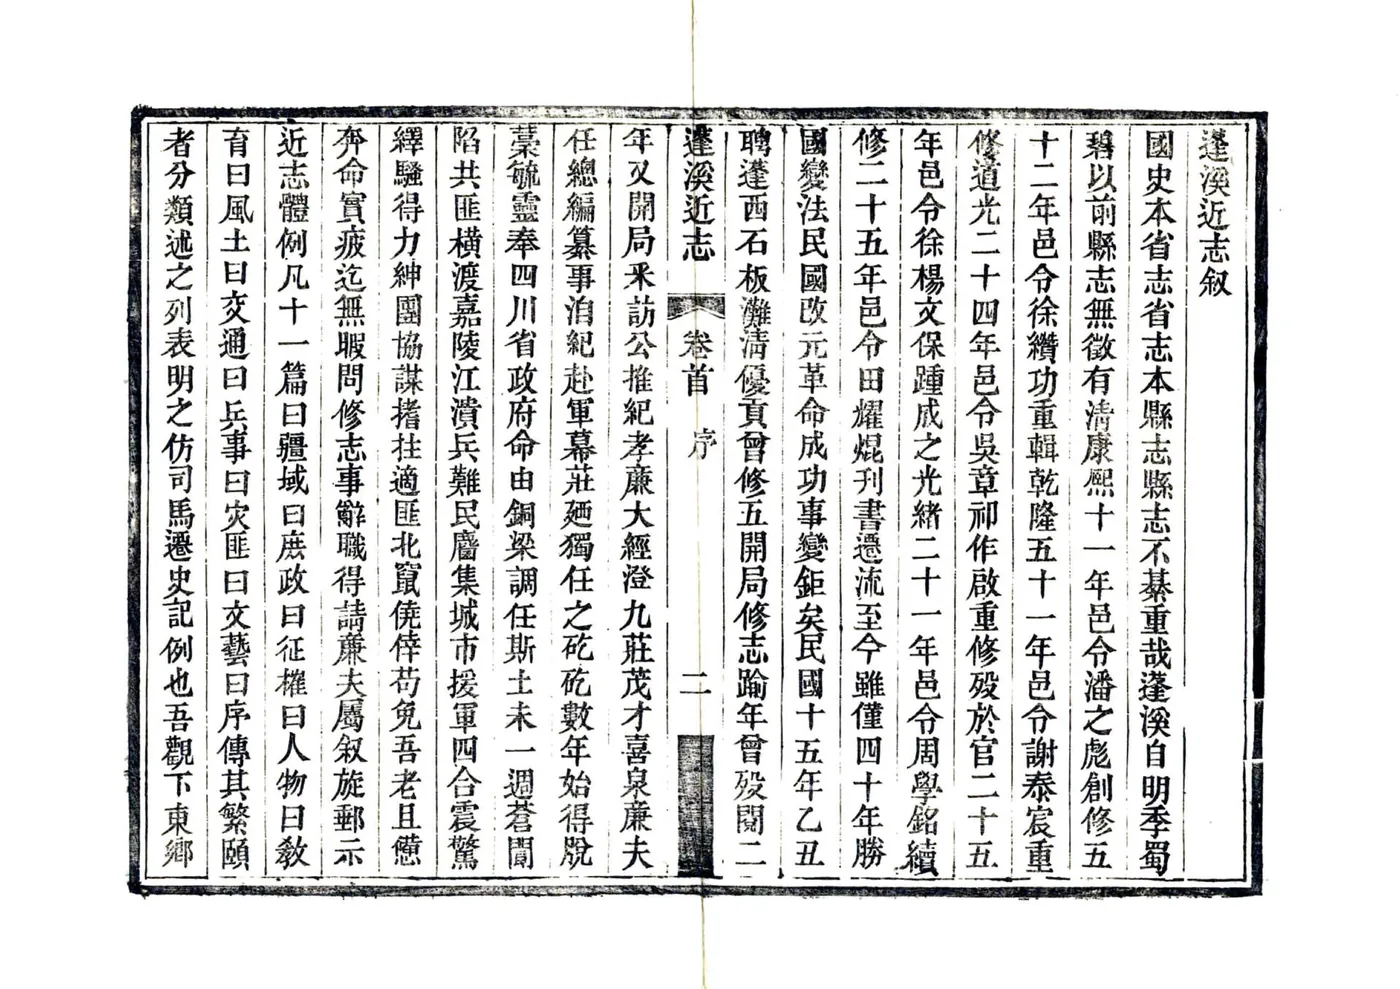 蓬溪近志叙
國史本省志省志本縣志縣志不綦重哉蓬溪自明季蜀
碧以前縣志無徵有清康熙十一年邑令潘之彪創修五
十二年邑令徐纘功重輯乾隆五十一年邑令謝泰宸重
修道光二十四年邑令吳章祁作啟重修歿於官二十五
年邑令徐楊文保踵成之光緒二十一年邑令周學銘續
修二十五年邑令田耀焜刋書遷流至今雖僅四十年勝
國變法民國改元革命成功事變鉅矣民國十五年乙丑
聘蓬西石板灘清優貢曾修五開局修志踰年曾歿閱二
蓬溪近志 卷首 序 二
年又開局釆訪公推紀孝廉大經澄九莊茂才喜泉廉夫
任總編纂事洎紀赴軍幕莊廼獨任之矻矻數年始得脫
藁毓靈奉四川省政府命由銅梁調任斯土未一週蒼閬
陷共匪橫渡嘉陵江潰兵難民麕集城市援軍四合震驚
繹騷得力紳團協謀搘拄適匪北竄僥倖苟免吾老且憊
奔命實疲迄無暇問修志事辭職得請廉夫屬叙旋郵示
近志體例凡十一篇曰疆域曰庶政曰征榷曰人物曰敎
育曰風土曰交通曰兵事曰灾匪曰文藝曰序傳其繁頤
者分類述之列表明之仿司馬遷史記例也吾觀下東鄉